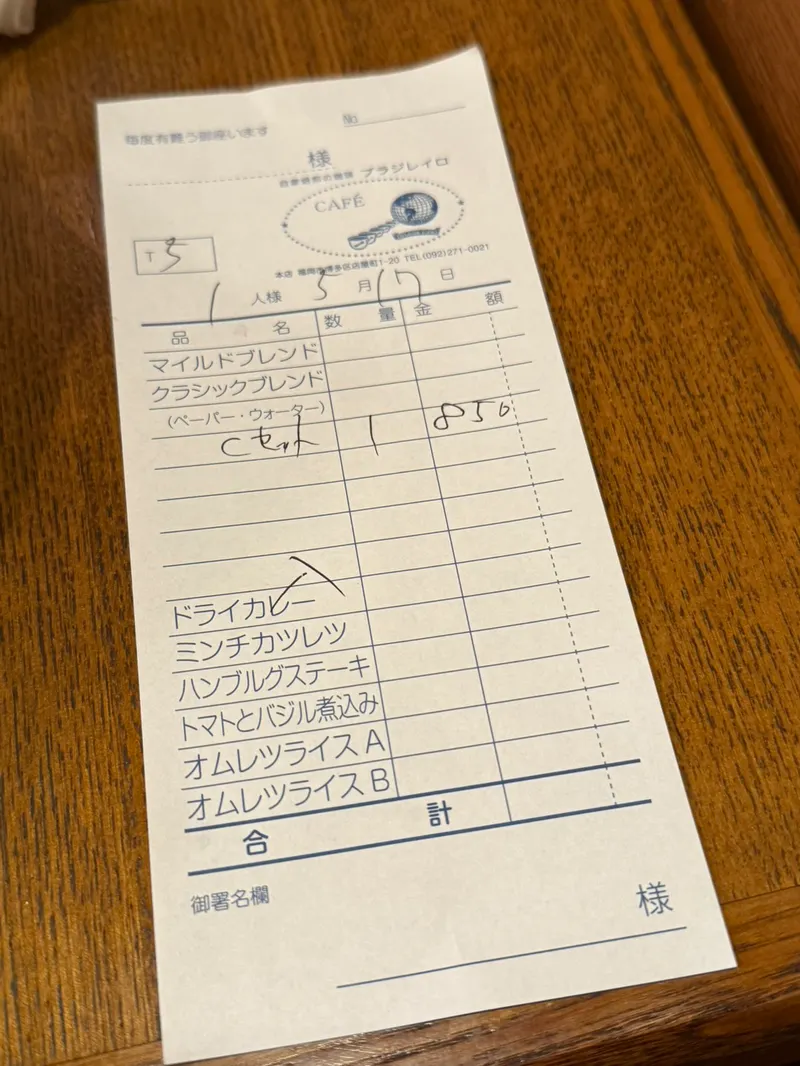 毎度有難う御座います
No
様
自家焙煎の珈琲 ブラジレイロ
CAFÉ
T 5
本店 福岡市博多区店屋町1-20 TEL(092)271-0021
1 人様 5 月 17 日
品 名 数 量 金 額
マイルドブレンド
クラシックブレンド
(ペーパー・ウォーター)
Cセット 1 850
ドライカレー
ミンチカツレツ
ハンブルグステーキ
トマトとバジル煮込み
オムレツライス A
オムレツライス B
合 計
御署名欄
様